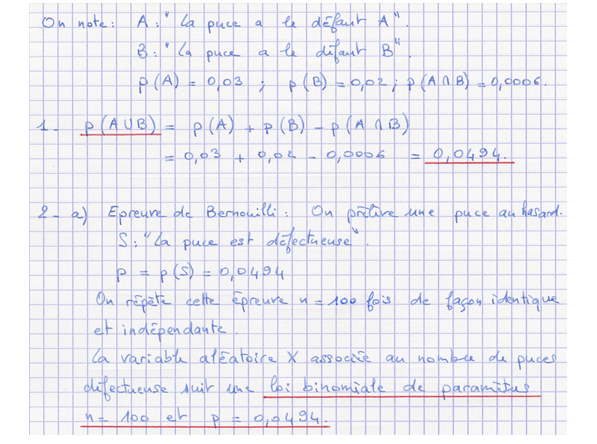 On note : A : "La puce a le défaut A".
B : "La puce a le défaut B".
p(A) = 0,03 ; p(B) = 0,02 ; p(A∩B) = 0,0006.
1- p(A∪B) = p(A) + p(B) - p(A∩B)
= 0,03 + 0,02 - 0,0006 = 0,0494.
2- a) Epreuve de Bernouilli : On prélève une puce au hasard.
S : "La puce est défectueuse".
p = p(S) = 0,0494
On répète cette épreuve n = 100 fois de façon identique
et indépendante.
La variable aléatoire X associée au nombre de puces
défectueuse suit une loi binomiale de paramètres
n = 100 et p = 0,0494.